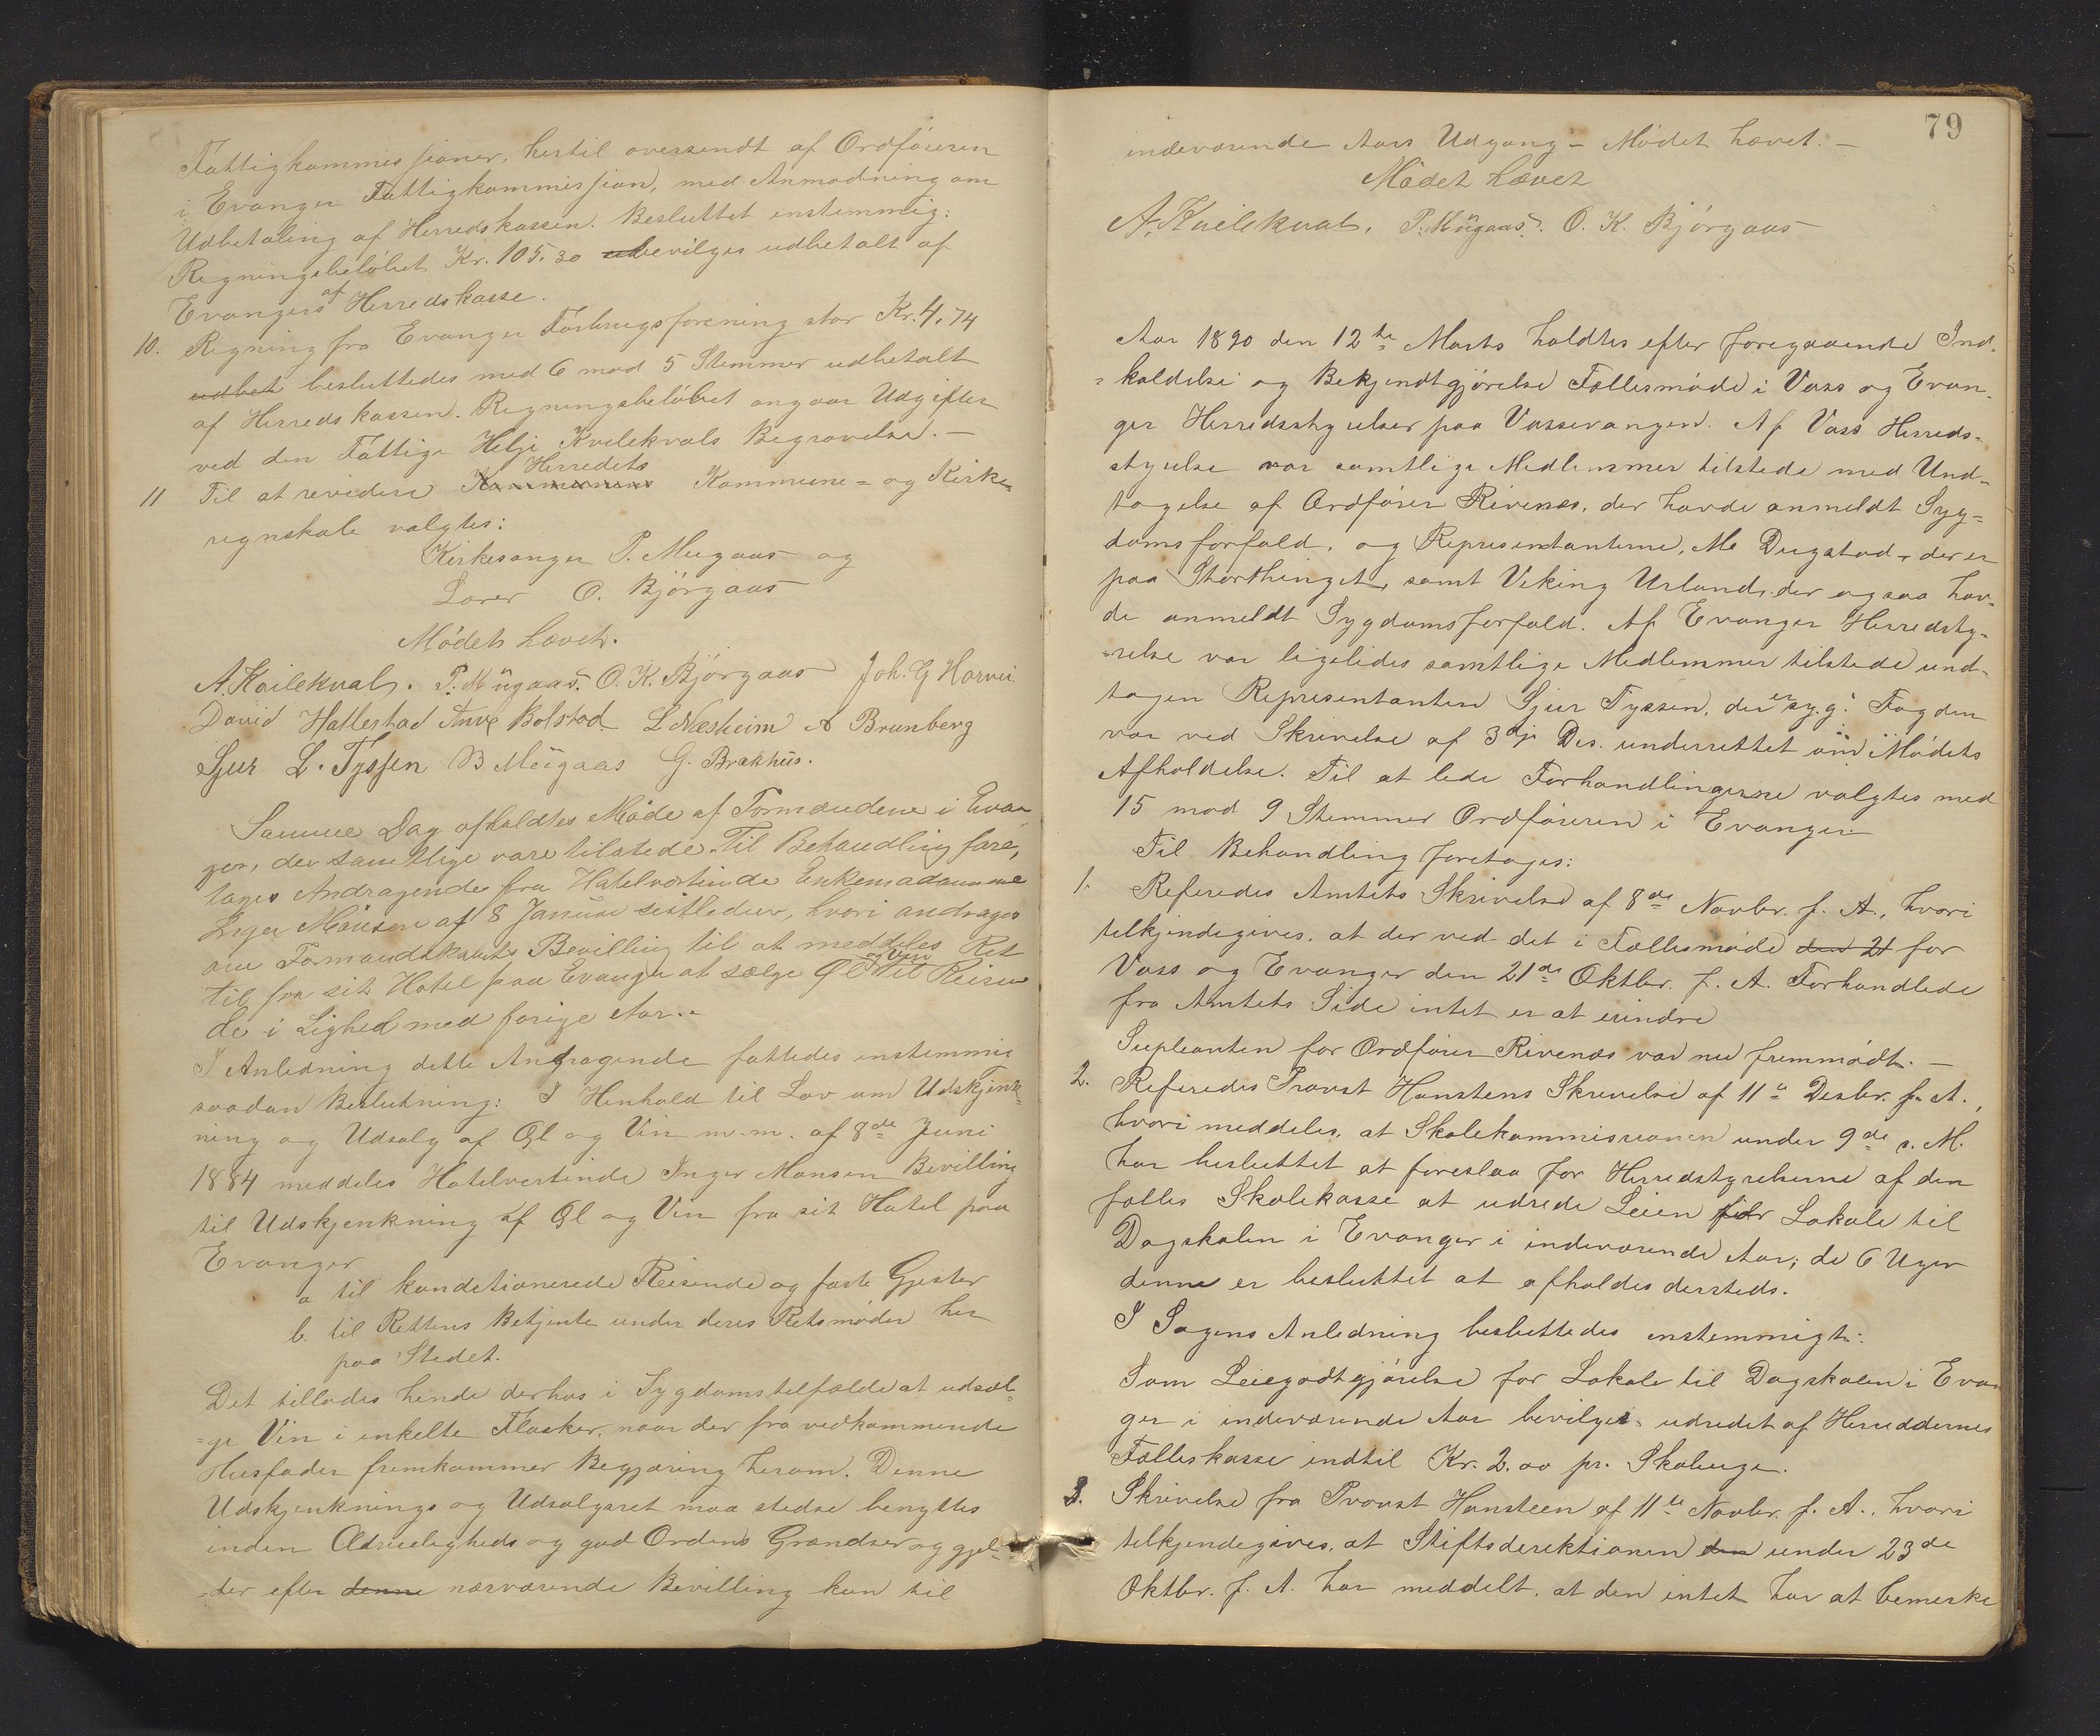 Fattigkommissioner, hertil oversendt af Ordföreren
i Evanger Fattigkommission, med Anmodning om
Udbetaling af Herredskassen. Besluttet enstemmig:
Regningsbelöbet Kr. 105.30 bevilges udbetalt af
Evangers Herredskasse.
10. Regning fra Evanger Forbrugsforening stor Kr. 4,74
udbet besluttedes med 6 mod 5 Stemmer udbetalt
af Herredskassen. Regningsbelöbet angaar Udgifter
ved den Fattige Helje Kvilekvals Begravelse.—
11 Til at revidere Herredets Kommune- og Kirke-
regnskab valgtes:
Kirkesanger P. Mugaas og
Lærer O. Björgaas
Mödet hævet.
A. Kvilekval. P. Mügaas. O. K. Björgaas Joh. G Horvei
David Hallestad Anve Bolstad L Næsheim A Brunberg
Sjur L. Tyssen B Mügaas G. Brakhus.
Samme Dag afholdtes Möde af Formændene i Evan-
ger, der samtlige vare tilstede. Til Behandling fore,
toges Andragende fra Hotelvertinde Enkemadamme
Inger Monsen af 8 Januar sistleden, hvori andrages
om Formandskabets Bevilling til at meddeles Ret
til fra sit Hotel paa Evanger at sælge Øl og Vin til Reisen
de i Lighed med forige Aar.-
I Anledning dette Andragende fattedes enstemmig
saadan Beslutning: I Henhold til Lov om Udskjenk-
ning og Udsalg af Øl og Vin m.m. af 8de Juni
1884 meddeles Hotelvertinde Inger Monsen Bevilling
til Udskjenkning af Øl og Vin fra sit Hotel paa
Evanger
a til konditionerede Reisende og faste Gjester
b. til Rettens Betjente under deres Retsmöder her
paa Stedet.
Det tillades hende derhos i Sygdomstilfælde at udsæl-
=ge Vin i enkelte Flasker, naar der fra vedkommende
Husfader fremkommer Begjæring herom. Denne
Udskjenknings og Udsalgsret maa stedse benyttes
inden Ædrueligheds og god Ordens Grændser og gjel-
=der efter denne nærværende Bevilling kun til
79
indeværende Aars Udgang – Mödet hævet.—
Mödet hævet
A. Kvilekval, P. Mügaas. O. K. Björgaas
Aar 1890 den 12te Marts holdtes efter foregaaende Ind-
=kaldelse og Bekjendtgjörelse Fællesmöde i Voss og Evan-
ger Herredsstyrelser paa Vossevangen. Af Voss Herreds-
styrelse var samtlige Medlemmer tilstede med Und-
tagelse af Ordförer Rivenes, der havde anmeldt Syg-
domsforfald, og Representanterne, Me Dugstad, der er
paa Storthinget, samt Viking Urland, der ogsaa hav-
de anmeldt Sygdomsforfald. Af Evanger Herredsty-
=relse var ligeledes samtlige Medlemmer tilstede und-
tagen Representanten Sjur Tyssen, der er syg. Fogden
var ved Skrivelse af 3dje Ds. underrettet om Mödets
Afholdelse. Til at lede Forhandlingerne valgtes med
15 mod 9 Stemmer Ordföreren i Evanger.
Til Behandling foretoges:
1. Referedes Amtets Skrivelse af 8de Novbr. f. A., hvori
tilkjendegives, at der ved det i Fællesmöde den 21 for
Voss og Evanger den 21de Oktbr. f. A. Forhandlede
fra Amtets Side intet er at erindre
Supleanten for Ordförer Rivenes var nu fremmödt.—
2. Referedes Provst Hanstens Skrivelse af 11te Desbr. f. A.,
hvori meddeles, at Skolekommissionen under 9de s. M.
har besluttet at foreslaa for Herredstyrelserne af den
fælles Skolekasse at udrede Leien for Lokale til
Dagskolen i Evanger i indeværende Aar, de 6 Uger
denne er besluttet at afholdes dersteds.
I Sagens Anledning besluttedes enstemmigt:
Som Leiegodtgjörelse for Lokale til Dagskolen i Evan
ger i indeværende Aar bevilges udredet af Herreddernes
Fælleskasse indtil Kr. 2.00 pr. Skoleuge.
3. Skrivelse fra Provst Hansteen af 11te Novbr. f. A., hvori
tilkjendegives, at Stiftsdirektionen den under 23de
Oktbr. f. A. har meddelt, at den intet har at bemerke